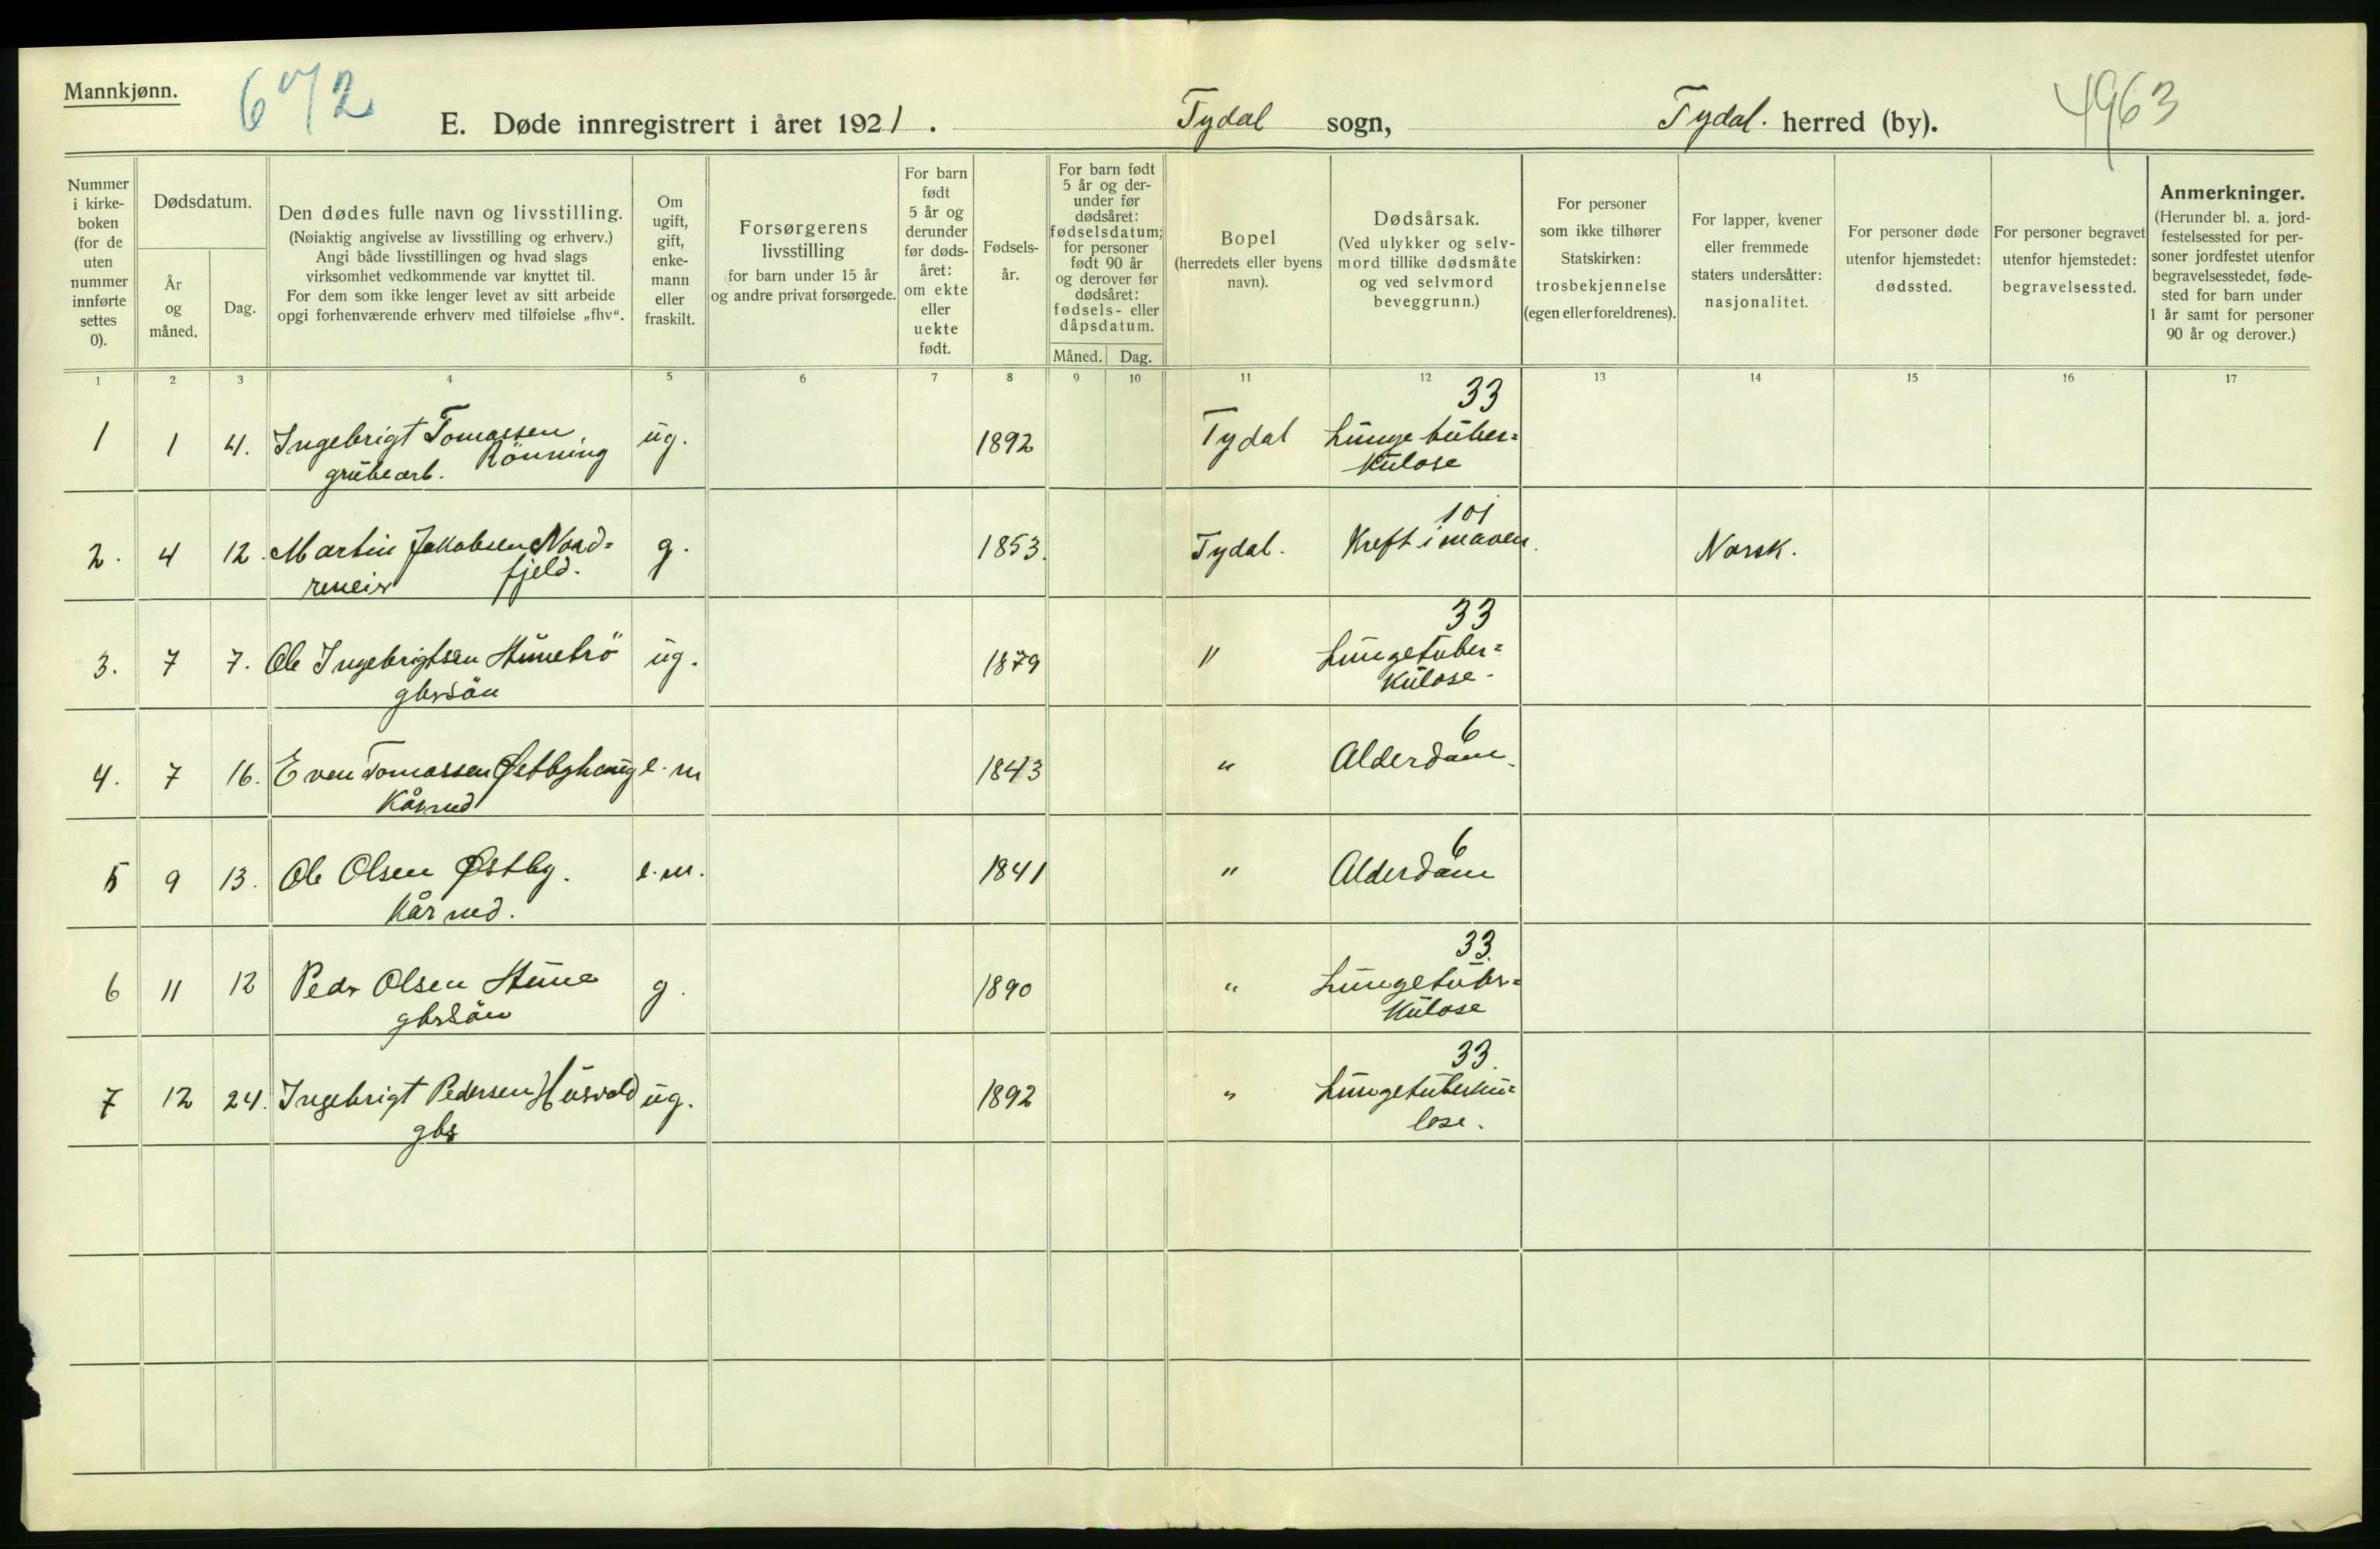 Mannkjønn.
672
E. Døde innregistrert i året 1921. Tydal sogn, Tydal. herred (by).
4963
Nummer i kirke- boken (for de uten nummer innførte settes 0).
Dødsdatum.
År og måned.
Dag.
Den dødes fulle navn og livsstilling.
(Nøiaktig angivelse av livsstilling og erhverv.)
Angi både livsstillingen og hvad slags
virksomhet vedkommende var knyttet til.
For dem som ikke lenger levet av sitt arbeide
opgi forhenværende erhverv med tilføielse „fhv“.
Om ugift, gift, enke- mann eller fraskilt.
Forsørgerens
livsstilling
for barn under 15 år
og andre privat forsørgede.
For barn født 5 år og derunder før døds- året: om ekte eller uekte født.
Fødsels- år.
For barn født 5 år og der- under før dødsåret: fødselsdatum; for personer født 90 år og derover før dødsåret: fødsels- eller dåpsdatum.
Måned. Dag.
Bopel
(herredets eller byens
navn).
Dødsårsak.
(Ved ulykker og selv-
mord tillike dødsmåte
og ved selvmord
beveggrunn.)
For personer
som ikke tilhører
Statskirken:
trosbekjennelse
(egen eller foreldrenes).
For lapper, kvener
eller fremmede
staters undersåtter:
nasjonalitet.
For personer døde
utenfor hjemstedet:
dødssted.
For personer begravet
utenfor hjemstedet:
begravelsessted.
Anmerkninger.
(Herunder bl. a. jord-
festelsessted for per-
soner jordfestet utenfor
begravelsesstedet, føde-
sted for barn under
1 år samt for personer
90 år og derover.)
1 2 3 4 5 6 7 8 9 10 11 12 13 14 15 16 17
33
1 1 4. Ingebrigt Tomassen ug. 1892 Tydal Lungetuber=
Rönning
grubearb. kulose
101
2. 4 12. Martin Jakobsen Nord= g. 1853. Tydal. Kreft i maven. Norsk.
fjeld.
reneir
33
3. 7 7. Ole Ingebrigtsen Hunetrö ug. 1879 " Lungetuber=
gbrsön kulose.
6
4. 7 16. Even Tomassen Østbyhaug e.m 1843 " Alderdom.
Kårmd
6
5 9 13. Ole Olsen Østby. e.m. 1841 " Alderdom
Kårmd.
33.
6 11 12 Peder Olsen Hune g. 1890 " Lungetuber=
gbrsön kulose
33.
7 12 24. Ingebrigt Pedersen Husvold ug. 1892 " Lungetuberku=
gbs lose.